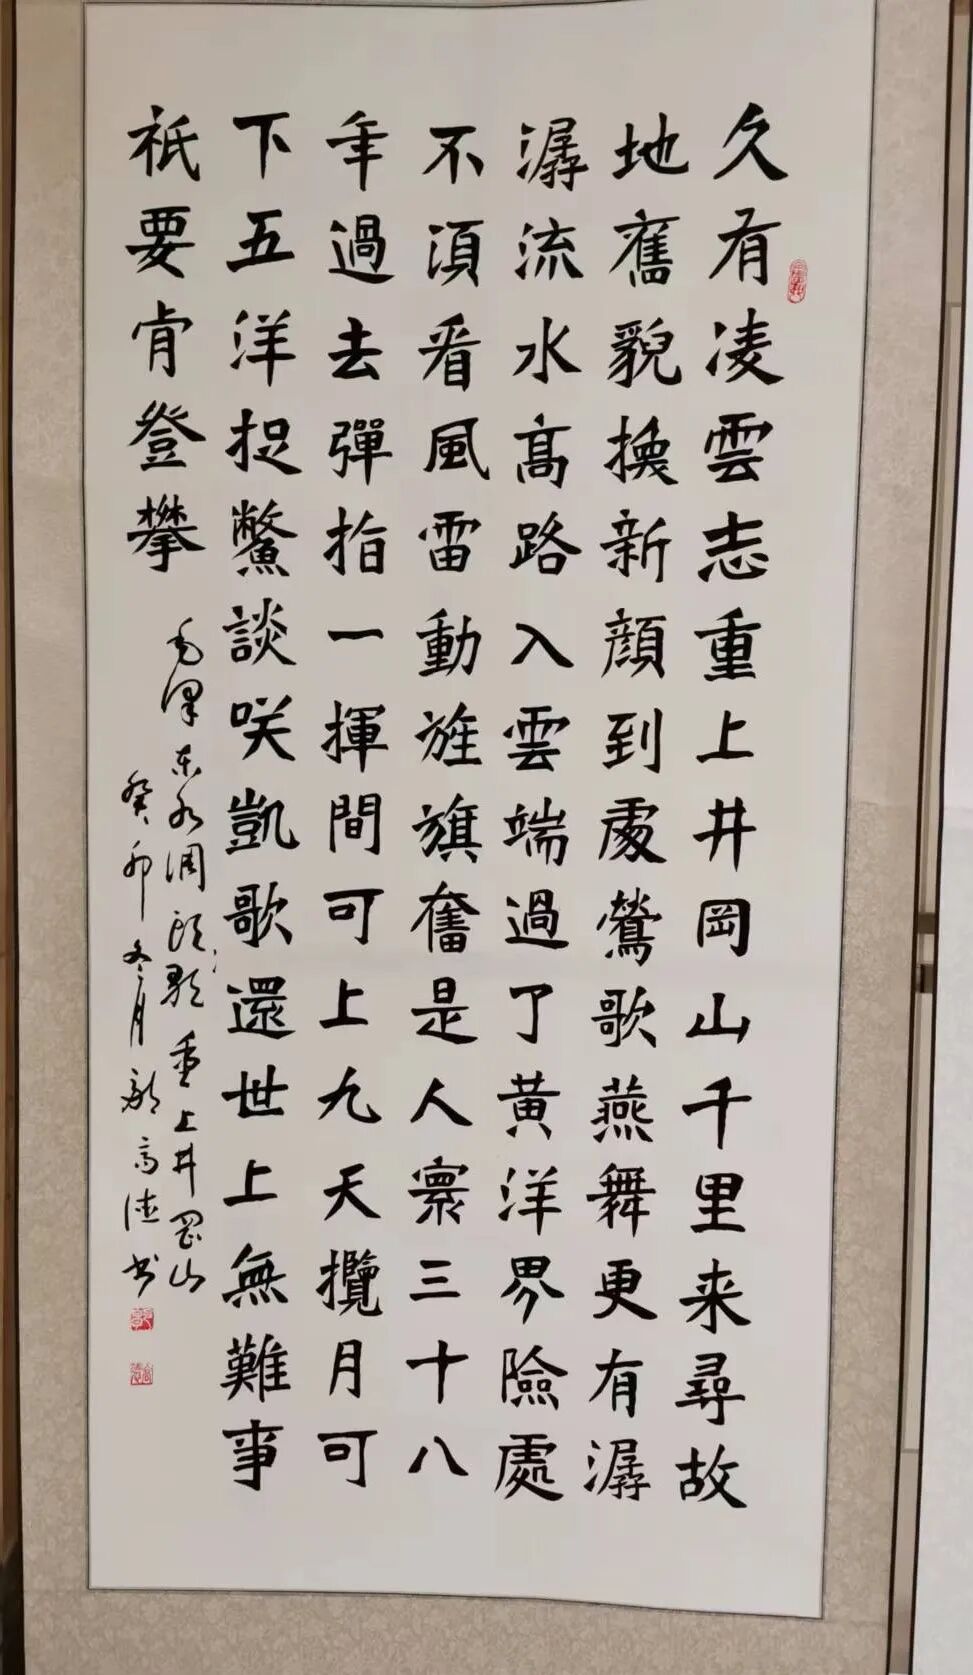 久有凌雲志重上井岡山千里来尋故
地舊貌換新顔到處鶯歌燕舞更有潺
潺流水髙路入雲端過了黄洋界險處
不湏看風雷動旌旗奮是人寰三十八
年過去彈指一揮間可上九天攬月可
下五洋捉鱉談咲凱歌還世上無難事
祇要肯登攀
毛泽东水调歌头重上井冈山
癸卯冬月高德书